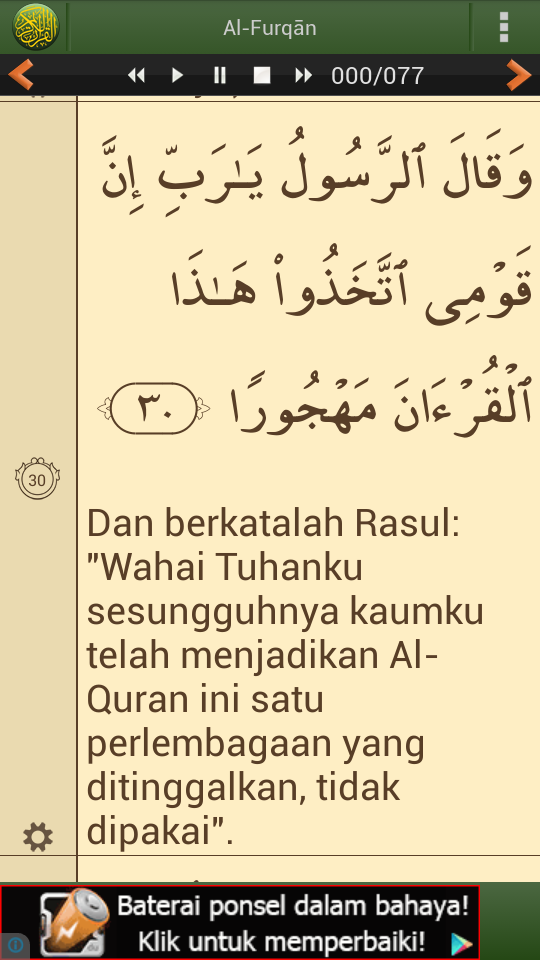 Al-Furqān
000/077
وَقَالَ ٱلرَّسُولُ يَـٰرَبِّ إِنَّ
قَوْمِى ٱتَّخَذُوا۟ هَـٰذَا
ٱلْقُرْءَانَ مَهْجُورًا ٣٠
30
Dan berkatalah Rasul:
"Wahai Tuhanku
sesungguhnya kaumku
telah menjadikan Al-
Quran ini satu
perlembagaan yang
ditinggalkan, tidak
dipakai".
Baterai ponsel dalam bahaya!
Klik untuk memperbaiki!